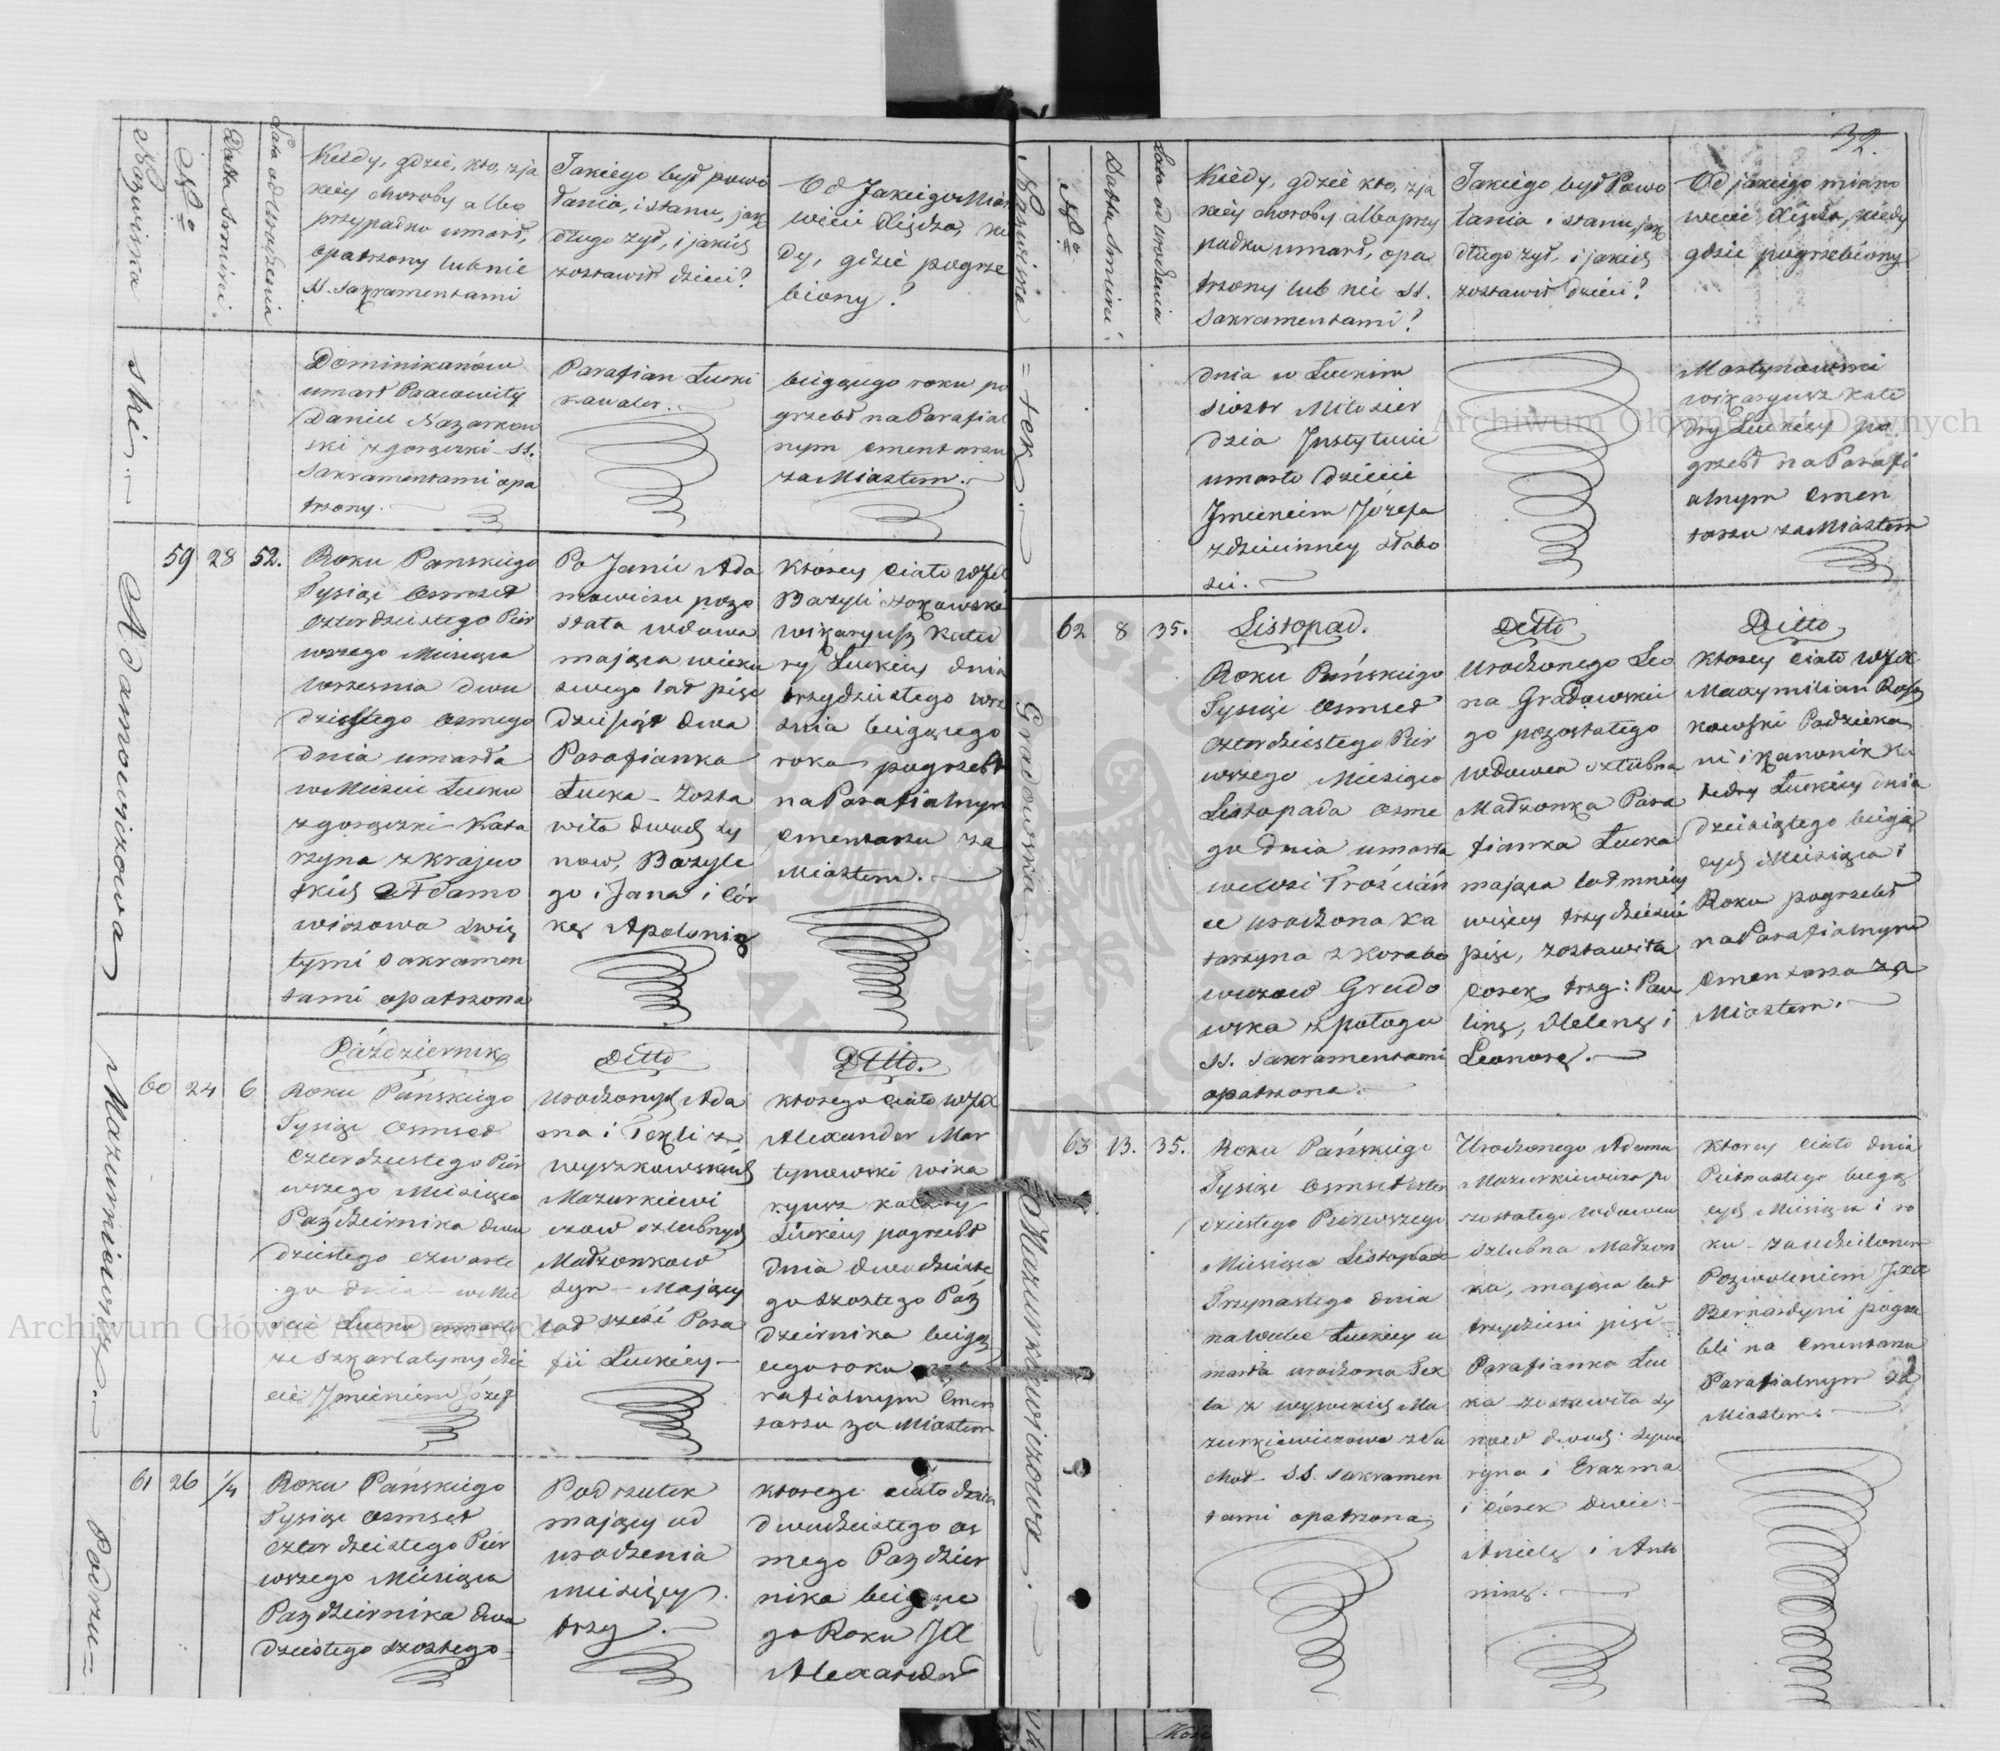 Nazwiska
No
Datta Smierci.
Lata od Urodzenia
Kiedy, gdzie, kto, z ja
kiey choroby albo
przypadku umarł,
opatrzony lub nie
SS. Sakramentami
Jakiego był powo
łania, i stanu, jak
długo żył, i jakich
zostawił dzieci?
Od Jakiego Mian
wicie Xiędza, kie
dy, gdzie pogrze
biony?
ski.
Dominikanów
umarł Pracowity
Daniel Nazarkow
ski z gorączki SS.
Sakramentami opa
trzony.
Parafian Łucki
kawaler.
bieżącego roku po
grzebł na Parafial
nym Cmentarzu
za Miastem.
Adamowiczowa
59 28 52.
Roku Panskiego
Tysiąc Osmset
Czterdziestego Pier
wszego Miesiąca
Wrzesnia dwu
dziestego osmego
dnia umarła
w Mieście Łucku
z gorączki Kata
rzyna z Krajew
skich Adamo
wiczowa Swię
tymi Sakramen
tami opatrzona
Po Janie Ada
mowiczu pozo
stała wdowa
mająca wieku
swego lat pięć
dziesiąt dwa
Parafianka
Łucka - Zosta
wiła dwuch Sy
now, Bazyle
go i Jana i Cór
kę Apolonię
którey Ciało WJX
Bazyli
Wikaryusz Kated
ry Łuckiey dnia
trzydziestego Wrze
snia bieżącego
roka pogrzebł
na Parafialnym
Cmentarzu za
Miastem.
Mazurkiewicz.
Październik
60 24 6
Roku Pańskiego
Tysiąc Osmset
Czterdziestego Pier
wszego Miesiąca
Października dwu
dziestego czwarte
go dnia - w Mie
ście Łucku umarło
ze Szkarlatyny dzie
cie Jmieniem Józef
Ditto
Urodzonych Ada
ma i Tekli z
Wyszkowskich
Mazurkiewi
czow Szlubnych
Małżonkow
Syn - Mający
lat sześć Para
fii Łuckiey -
Ditto.
ktorego Ciało WJX
Alexander Mar
tynowski Wika
ryusz Katedry
Łuckiey pogrzebł
dnia dwudzieste
go szostego Paź
dziernika bieżą
cego roku
rafialnym Cmen
tarzu za Miastem
Podrzu=
61 26 1/4
Roku Pańskiego
Tysiąc Osmset
Czterdziestego Pier
wszego Miesiąca
Pazdziernika dwu
dziestego szostego
Podrzutek
mający od
urodzenia
miesięcy
trzy.
ktorego ciało dnia
dwudziestego os
mego Pazdzier
nika bieżące
go Roku JX
Alexander
32.
Nazwiska
No
Datta Smierci.
Lata od Urodzenia
Kiedy, gdzie kto, z ja
kiey choroby albo przy
padku umarł, opa
trzony lub nie SS.
Sakramentami?
Jakiego był Powo
łania i stanu, jak
długo żył, i jakich
zostawił dzieci?
Od jakiego miano
wicie Xiędza, kiedy
gdzie pogrzebiony
=tek.
dnia w Łuckim
Siostr Miłosier
dzia Jnstytucie
umarło dziecie
Jmieniem Józefa
z dziecinney słabo
ści.
Martynowski
wikaryusz Kate
dry Łuckiey po
grzebł na Parafi
alnym Cmen
tarzu za Miastem
Gradowska.
62 8 35.
Listopad.
Roku Pańskiego
Tysiąc Osmset
Czterdziestego Pier
wszego Miesiąca
Listopada Osme
go dnia umarła
we wsi Trościań
ce urodzona Ka
tarzyna z Korabe
wiczow Grado
wska z połogu
SS. Sakramentami
opatrzona.
Ditto
Urodzonego Leo
na Gradowskie
go pozostałego
Wdowca szlubna
Małżonka Para
fianka Łucka
mająca lat mniey
więcey trzydzieści
pięć, zostawiła
Corek trzy: Pau
linę, Helenę i
Leonorę.
Ditto
ktorey Ciało WJX
Maxymilian
Podzieka
ni i Kanonik Ka
tedry Łuckiey dnia
dziesiątego bieżą
cych Miesiąca i
Roku pogrzebł
na Parafialnym
Cmentarzu za
Miastem.
Mazurkiewiczowa.
63 13. 35.
Roku Pańskiego
Tysiąc Osmset Czter
dziestego Pierwszego
Miesiąca Listopada
Trzynastego dnia
na Wulce Łuckiey u
marła urodzona Tek
la z Ma
zurkiewiczowa z Su
chot - SS. Sakramen
tami opatrzona
Urodzonego Adama
Mazurkiewicza po
zostałego Wdowca
Szlubna Małżon
ka, mająca lat
trzydzieści pięć -
Parafianka Łuc
ka zostawiła Sy
now dwuch: Sewe
ryna i Erazma
i córek dwie: -
Anielę i Anto
ninę.
ktorey Ciało dnia
Pietnastego bieżą
cych Miesiąca i ro
ku - za udzielonem
Pozwoleniem JXX
Bernardyni pogrze
bli na Cmentarzu
Parafialnym za
Miastem.
Archiwum Główne Akt Dawnych
Archiwum Główne Akt Dawnych